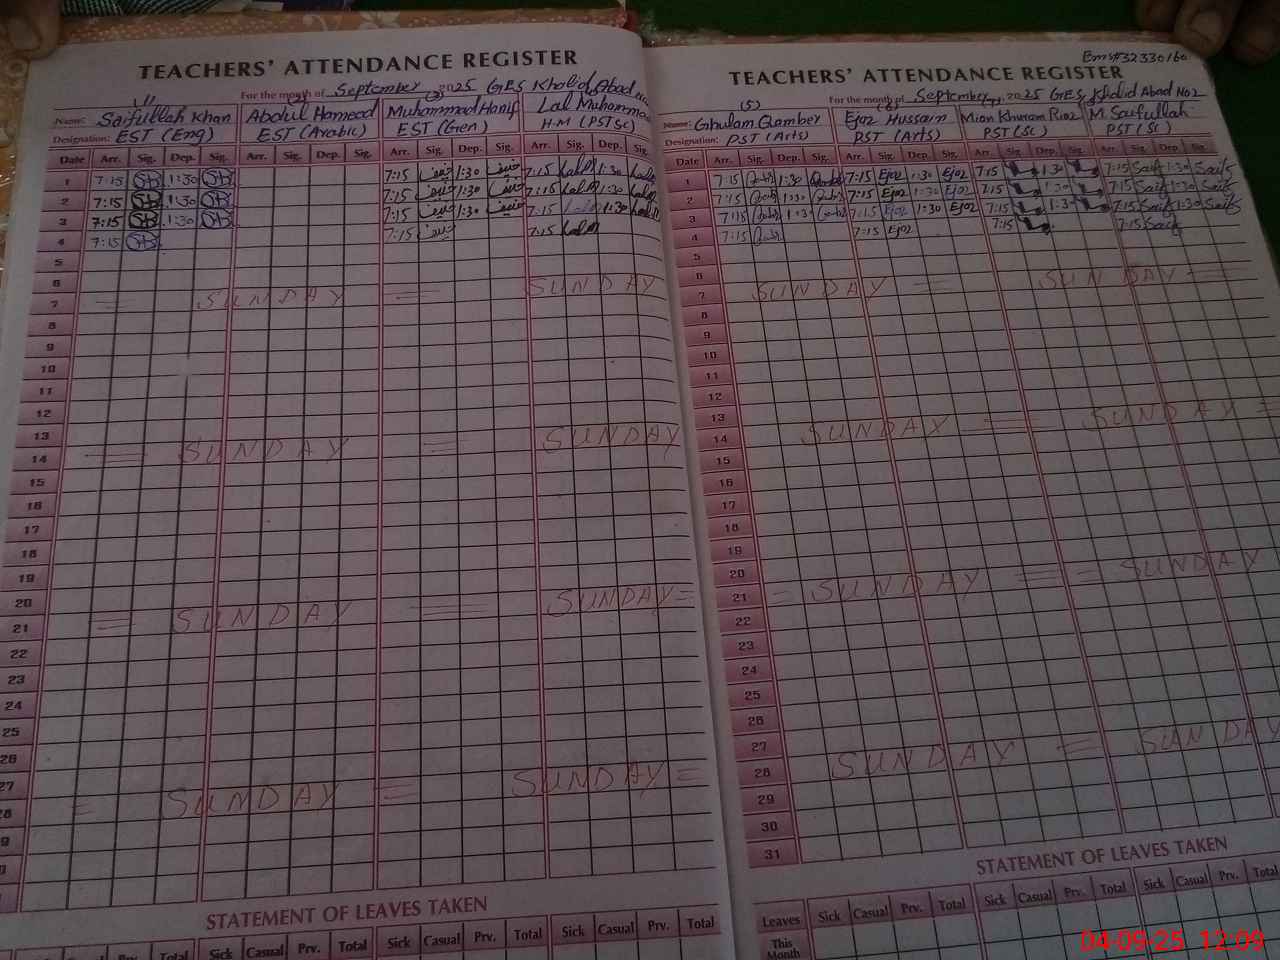 TEACHERS' ATTENDANCE REGISTER
For the month of September 2025 GES Khalid Abad
(1) (2) (3)
Name: Saifullah Khan Abdul Hameed Muhammad Hanif Lal Muhammad
Designation: EST (Eng) EST (Arabic) EST (Gen) H.M (PSTSc)
Date Arr. Sig. Dep. Sig. Arr. Sig. Dep. Sig. Arr. Sig. Dep. Sig. Arr. Sig. Dep. Sig.
1 7:15 1:30 7:15 حنیف 1:30 حنیف 7:15 Lalm 1:30 Lalm
2 7:15 1:30 7:15 حنیف 1:30 حنیف 7:15 Lalm 1:30 Lalm
3 7:15 1:30 7:15 حنیف 1:30 حنیف 7:15 Lalm 1:30 Lalm
4 7:15 7:15 حنیف 7:15 Lalm
5
6
7 SUNDAY SUNDAY
8
9
10
11
12
13
14 SUNDAY SUNDAY
15
16
17
18
19
20
21 SUNDAY SUNDAY
22
23
24
25
26
27
28 SUNDAY SUNDAY
STATEMENT OF LEAVES TAKEN
Sick Casual Prv. Total Sick Casual Prv. Total Sick Casual Prv. Total
Ems#32330160
TEACHERS' ATTENDANCE REGISTER
For the month of September 2025 GES Khalid Abad No2
(5) (6)
Name: Ghulam Qamber Ejaz Hussain Mian Khuram Riaz M. Saifullah
Designation: PST (Arts) PST (Arts) PST (Sc) PST (Sc)
Date Arr. Sig. Dep. Sig. Arr. Sig. Dep. Sig. Arr. Sig. Dep. Sig. Arr. Sig. Dep. Sig.
1 7:15 1:30 7:15 Ejaz 1:30 Ejaz 7:15 1:30 7:15 Saif 1:30 Saif
2 7:15 1:30 7:15 Ejaz 1:30 Ejaz 7:15 1:30 7:15 Saif 1:30 Saif
3 7:15 1:30 7:15 Ejaz 1:30 Ejaz 7:15 1:30 7:15 Saif 1:30 Saif
4 7:15 7:15 Ejaz 7:15 7:15 Saif
5
6
7 SUNDAY SUNDAY
8
9
10
11
12
13
14 SUNDAY SUNDAY
15
16
17
18
19
20
21 SUNDAY SUNDAY
22
23
24
25
26
27
28 SUNDAY SUNDAY
29
30
31
STATEMENT OF LEAVES TAKEN
Leaves Sick Casual Prv. Total Sick Casual Prv. Total Sick Casual Prv. Total
This Month
04-09-25 12:09